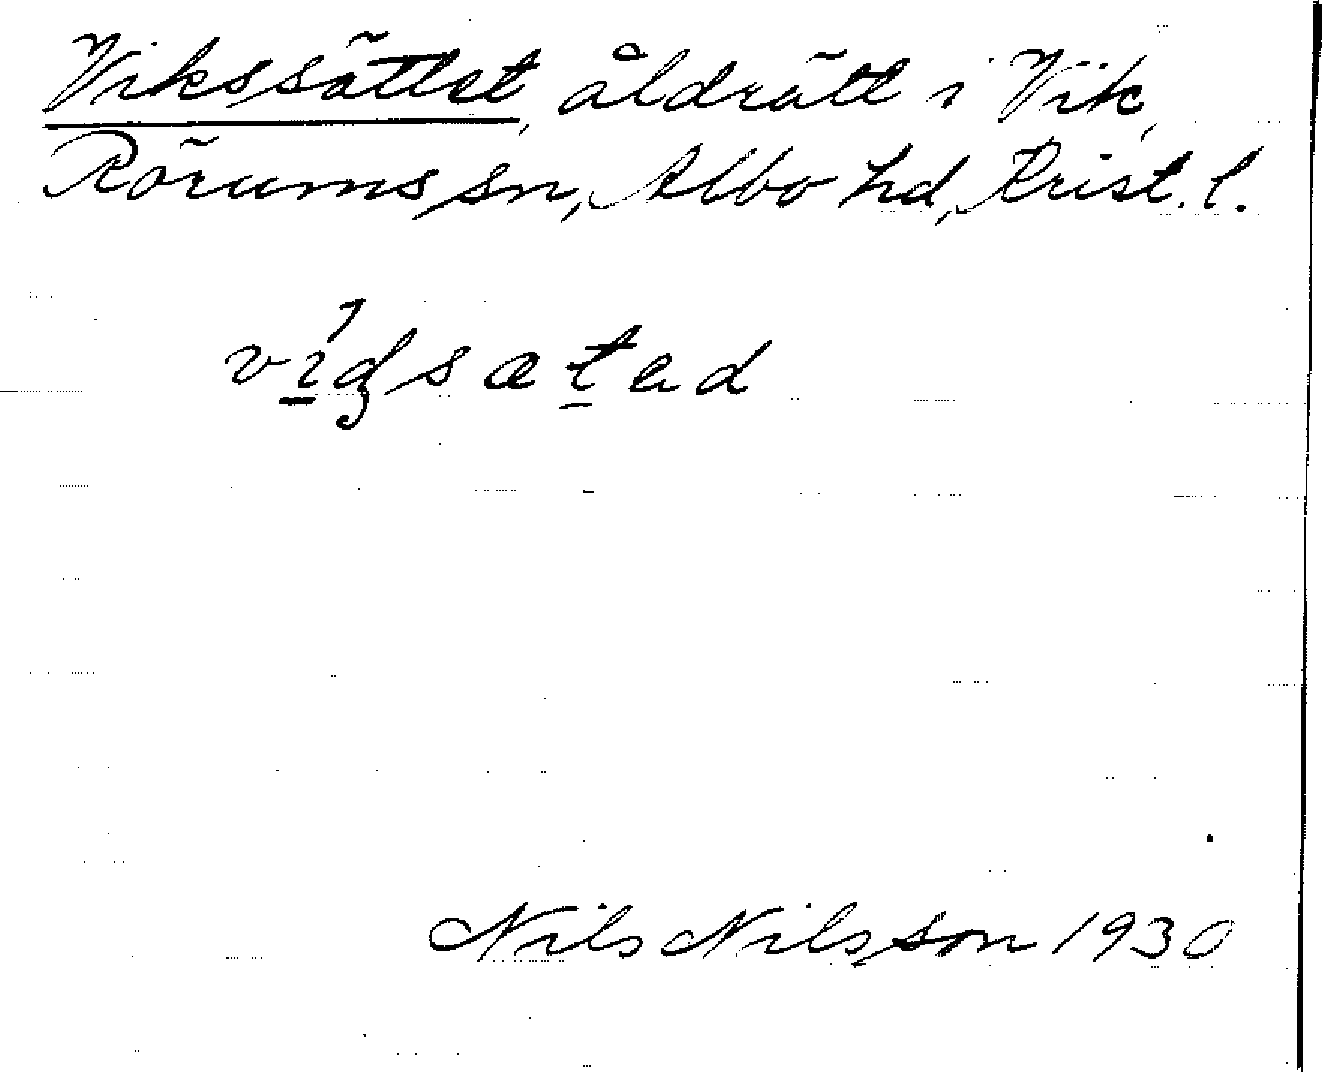 Vikssättet, åldrätt i Vik,
Rörums sn, Albo hd, Krist. l.
Nils Nilsson 1930